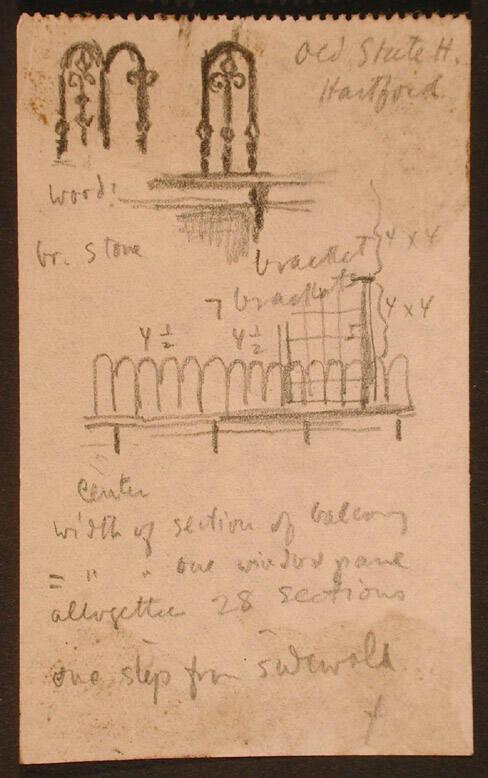 Old State H.
Hartford
wood:
br. stone
bracket 4 x 4
7 brackets 4 x 4
4 1/2 4 1/2 5
Center
width of section of balcony
= " " one window pane
alltogether 28 sections
one step from sidewalk